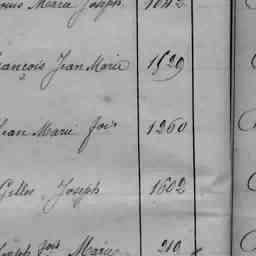 Louis Marie Joseph 1642
François Jean Marie 1529
Jean Marie fois 1260
Gilles Joseph 1602
Joseph fois Marie 210